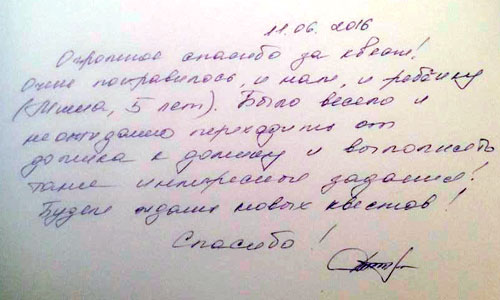 11.06.2016
Огромное спасибо за квест!
Очень понравилось, и нам, и ребёнку
(Миша, 5 лет). Было весело и
неожиданно переходить от
домика к домику и выполнять
такие интересные задания!
Будем ждать новых квестов!
Спасибо!